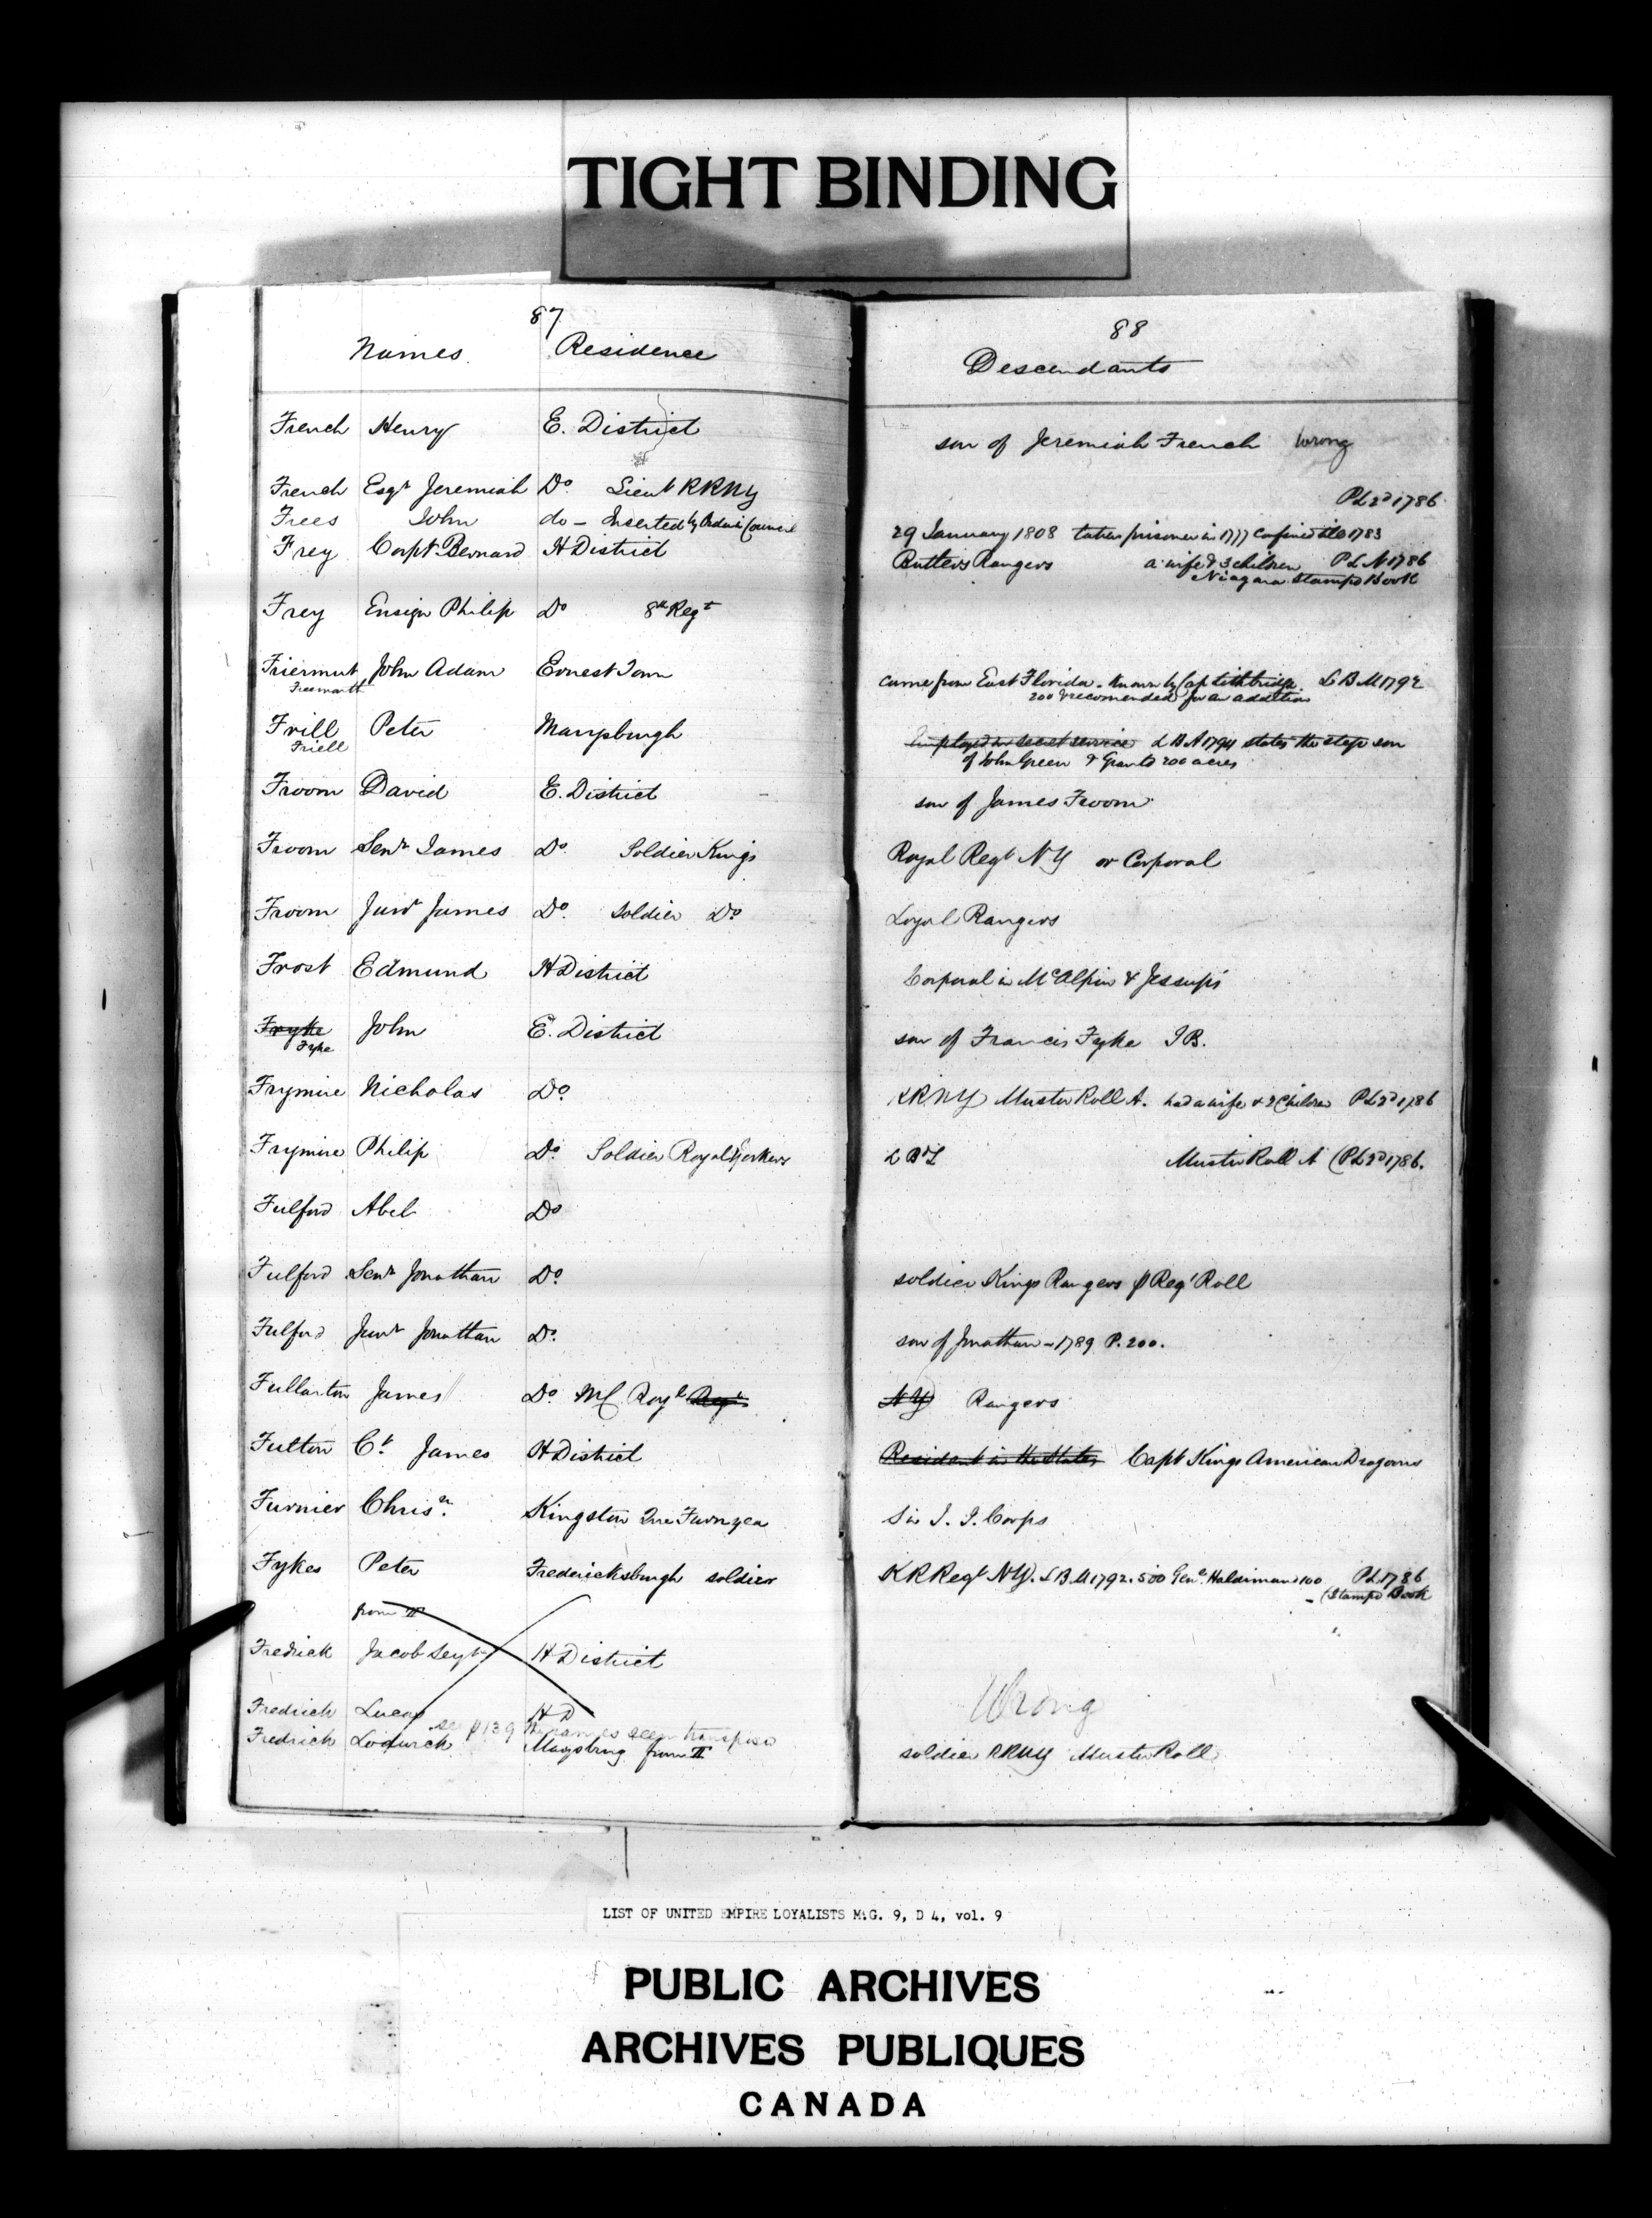 TIGHT BINDING
87
Names Residence
French Henry E. District
French Esqr Jeremiah Do Lieut RRNY
Frees John do - Inserted by Order in Council
Frey Capt Bernard H District
Frey Ensign Philip Do 8th Regt
Friermut John Adam Ernest Town
Frill Peter Marysburgh
Friell
Froom David E. District
Froom Senr James Do Soldier Kings
Froom Junr James Do. Soldier Do
Frost Edmund H District
Fryke John E. District
Fyke
Frymire Nicholas Do
Frymire Philip Do Soldier Royal Yorkers
Fulford Abel Do
Fulford Senr Jonathan Do
Fulford Junr Jonathan Do.
Fullarton James Do Royl Regt
Fulton Ct James H District
Furnier Chrisr. Kingston Furnyea
Fykes Peter Fredericksburgh soldier
from II
Fredrick Jacob H District
Fredrick Lucas H D
see p 139 The names seem transposed
Fredrick Lodwick Marysburg from II
88
Descendants
son of Jeremiah French Wrong
PL 2d 1786
29 January 1808 taken prisoner in 1777 confined till 1783
Butlers Rangers a wife & 3 children PLN 1786
Niagara Stamped Book
came from East Florida. Known by Capt LBM 1792
200 & recomended for an addition
Employed in secret service LBA 1794 states the step son
of John Green & Grants 200 acres
son of James Froom
Royal Regt NY or Corporal
Loyal Rangers
Corporal in McAlpin & Jessups
son of Francis Fyke
KRRNY Muster Roll A. had a wife & 2 Children PL 2d 1786
Muster Roll A (PL 2d 1786.
soldier Kings Rangers p Regt Roll
son of Jonathan - 1789 P. 200.
NY Rangers
Resident in the States Capt Kings American Dragoons
Sir J. J. Corps
KR Regt NY. LBM 1792. 500 Genl Haldimand 100 PL 1786
(Stamped Book
Wrong
soldier RRNY Muster Roll
LIST OF UNITED EMPIRE LOYALISTS M.G. 9, D 4, vol. 9
PUBLIC ARCHIVES
ARCHIVES PUBLIQUES
CANADA